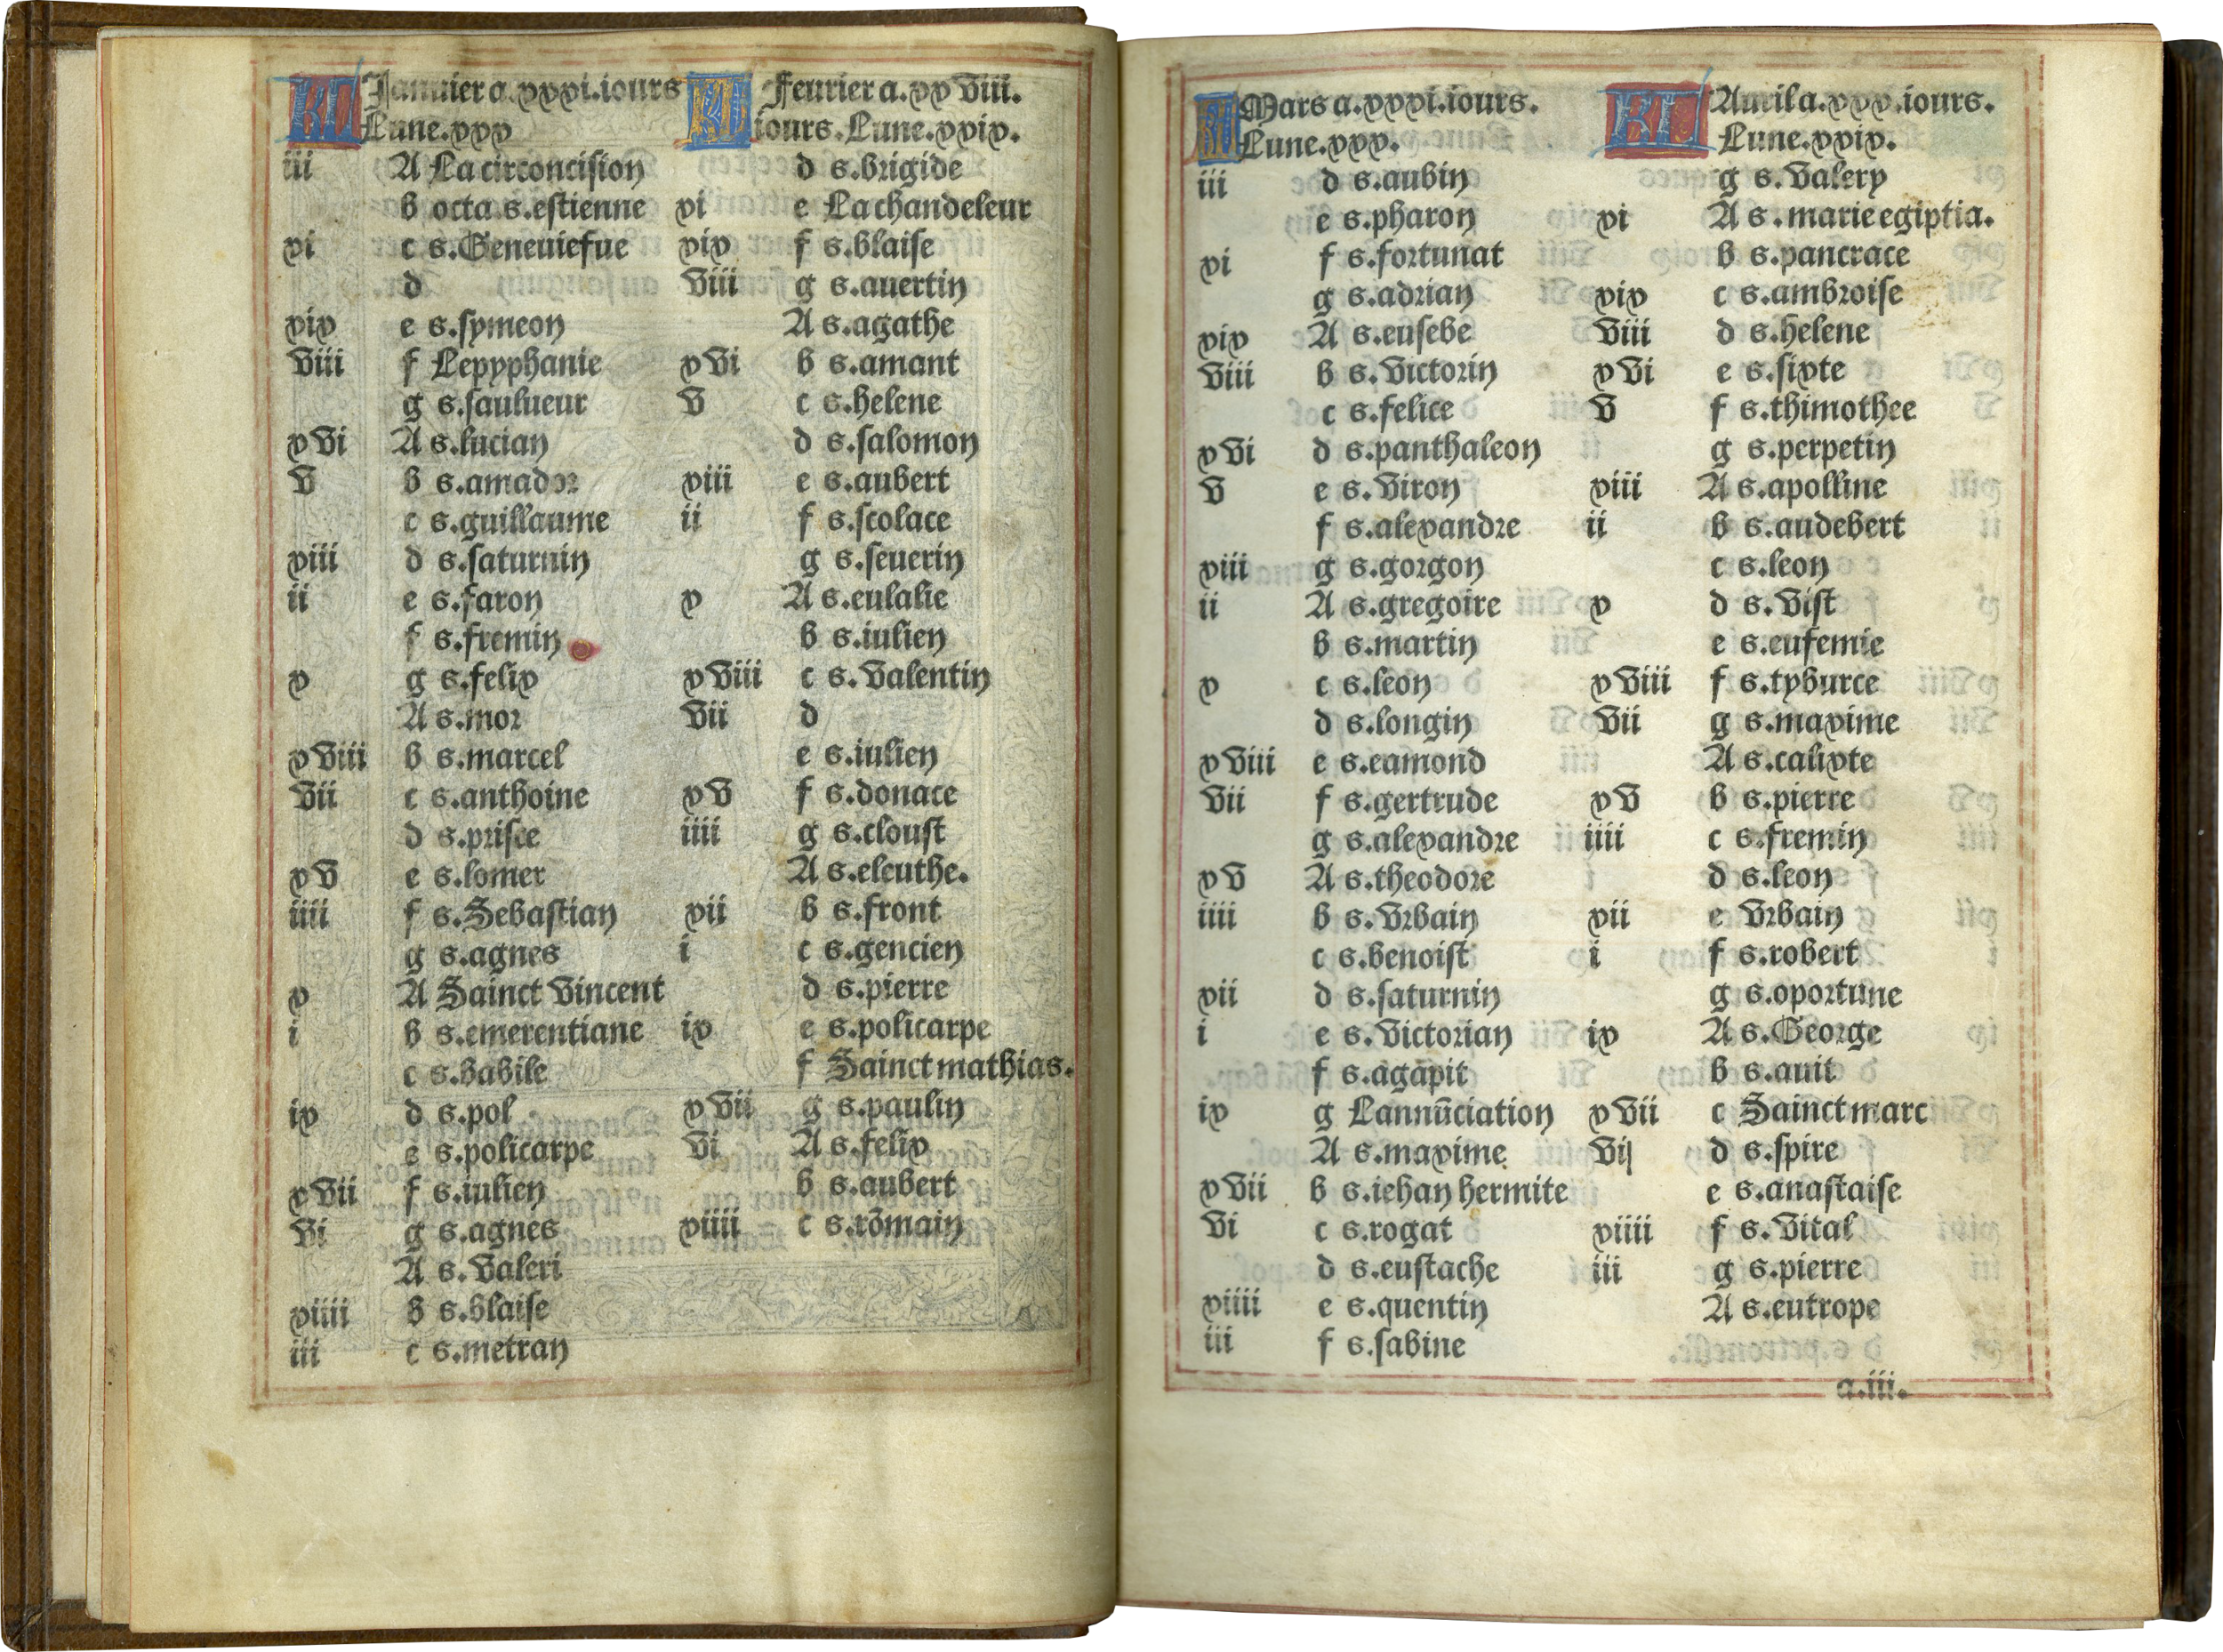 KL Januier a. xxxi. iours
Lune. xxx
iii A La circoncision
b octa. s. estienne
xi c s. Geneuiefue
d
xix e s. symeon
viii f Lepyphanie
g s. saulueur
xvi A s. lucian
v b s. amador
c s. guillaume
xiii d s. saturnin
ii e s. faron
f s. fremin
x g s. felix
A s. mor
xviii b s. marcel
vii c s. anthoine
d s. prisce
xv e s. lomer
iiii f s. Sebastian
g s. agnes
x A Sainct Vincent
i b s. emerentiane
c s. babile
ix d s. pol
e s. policarpe
xvii f s. iulien
vi g s. agnes
A s. Valeri
xiiii b s. blaise
iii c s. metran
KL Feurier a. xxviii.
iours. Lune. xxix.
d s. brigide
xi e La chandeleur
xix f s. blaise
viii g s. auertin
A s. agathe
xvi b s. amant
v c s. helene
d s. salomon
xiii e s. aubert
ii f s. scolace
g s. seuerin
x A s. eulalie
b s. iulien
xviii c s. Valentin
vii d
e s. iulien
xv f s. donace
iiii g s. cloust
A s. eleuthe.
xii b s. front
i c s. gencien
d s. pierre
ix e s. policarpe
f Sainct mathias.
xvii g s. paulin
vi A s. felix
b s. aubert
xiiii c s. rõmain
KL Mars a. xxxi. iours.
Lune. xxx.
iii d s. aubin
e s. pharon
xi f s. fortunat
g s. adrian
xix A s. eusebe
viii b s. Victorin
c s. felice
xvi d s. panthaleon
v e s. Viron
f s. alexandre
xiii g s. gorgon
ii A s. gregoire
b s. martin
x c s. leon
d s. longin
xviii e s. eamond
vii f s. gertrude
g s. alexandre
xv A s. theodore
iiii b s. Vrbain
c s. benoist
xii d s. saturnin
i e s. Victorian
f s. agapit
ix g Lannũciation
A s. maxime
xvii b s. iehan hermite
vi c s. rogat
d s. eustache
xiiii e s. quentin
iii f s. sabine
KL Auril a. xxx. iours.
Lune. xxix.
g s. Valery
xi A s. marie egiptia.
b s. pancrace
xix c s. ambroise
viii d s. helene
xvi e s. sixte
v f s. thimothee
g s. perpetin
xiii A s. apolline
ii b s. audebert
c s. leon
x d s. Vist
e s. eufemie
xviii f s. tyburce
vii g s. maxime
A s. calixte
xv b s. pierre
iiii c s. fremin
d s. leon
xii e Vrbain
i f s. robert
g s. oportune
ix A s. George
b s. auit
xvii c Sainct marc
vi d s. spire
e s. anastaise
xiiii f s. Vital
iii g s. pierre
A s. eutrope
a.iii.